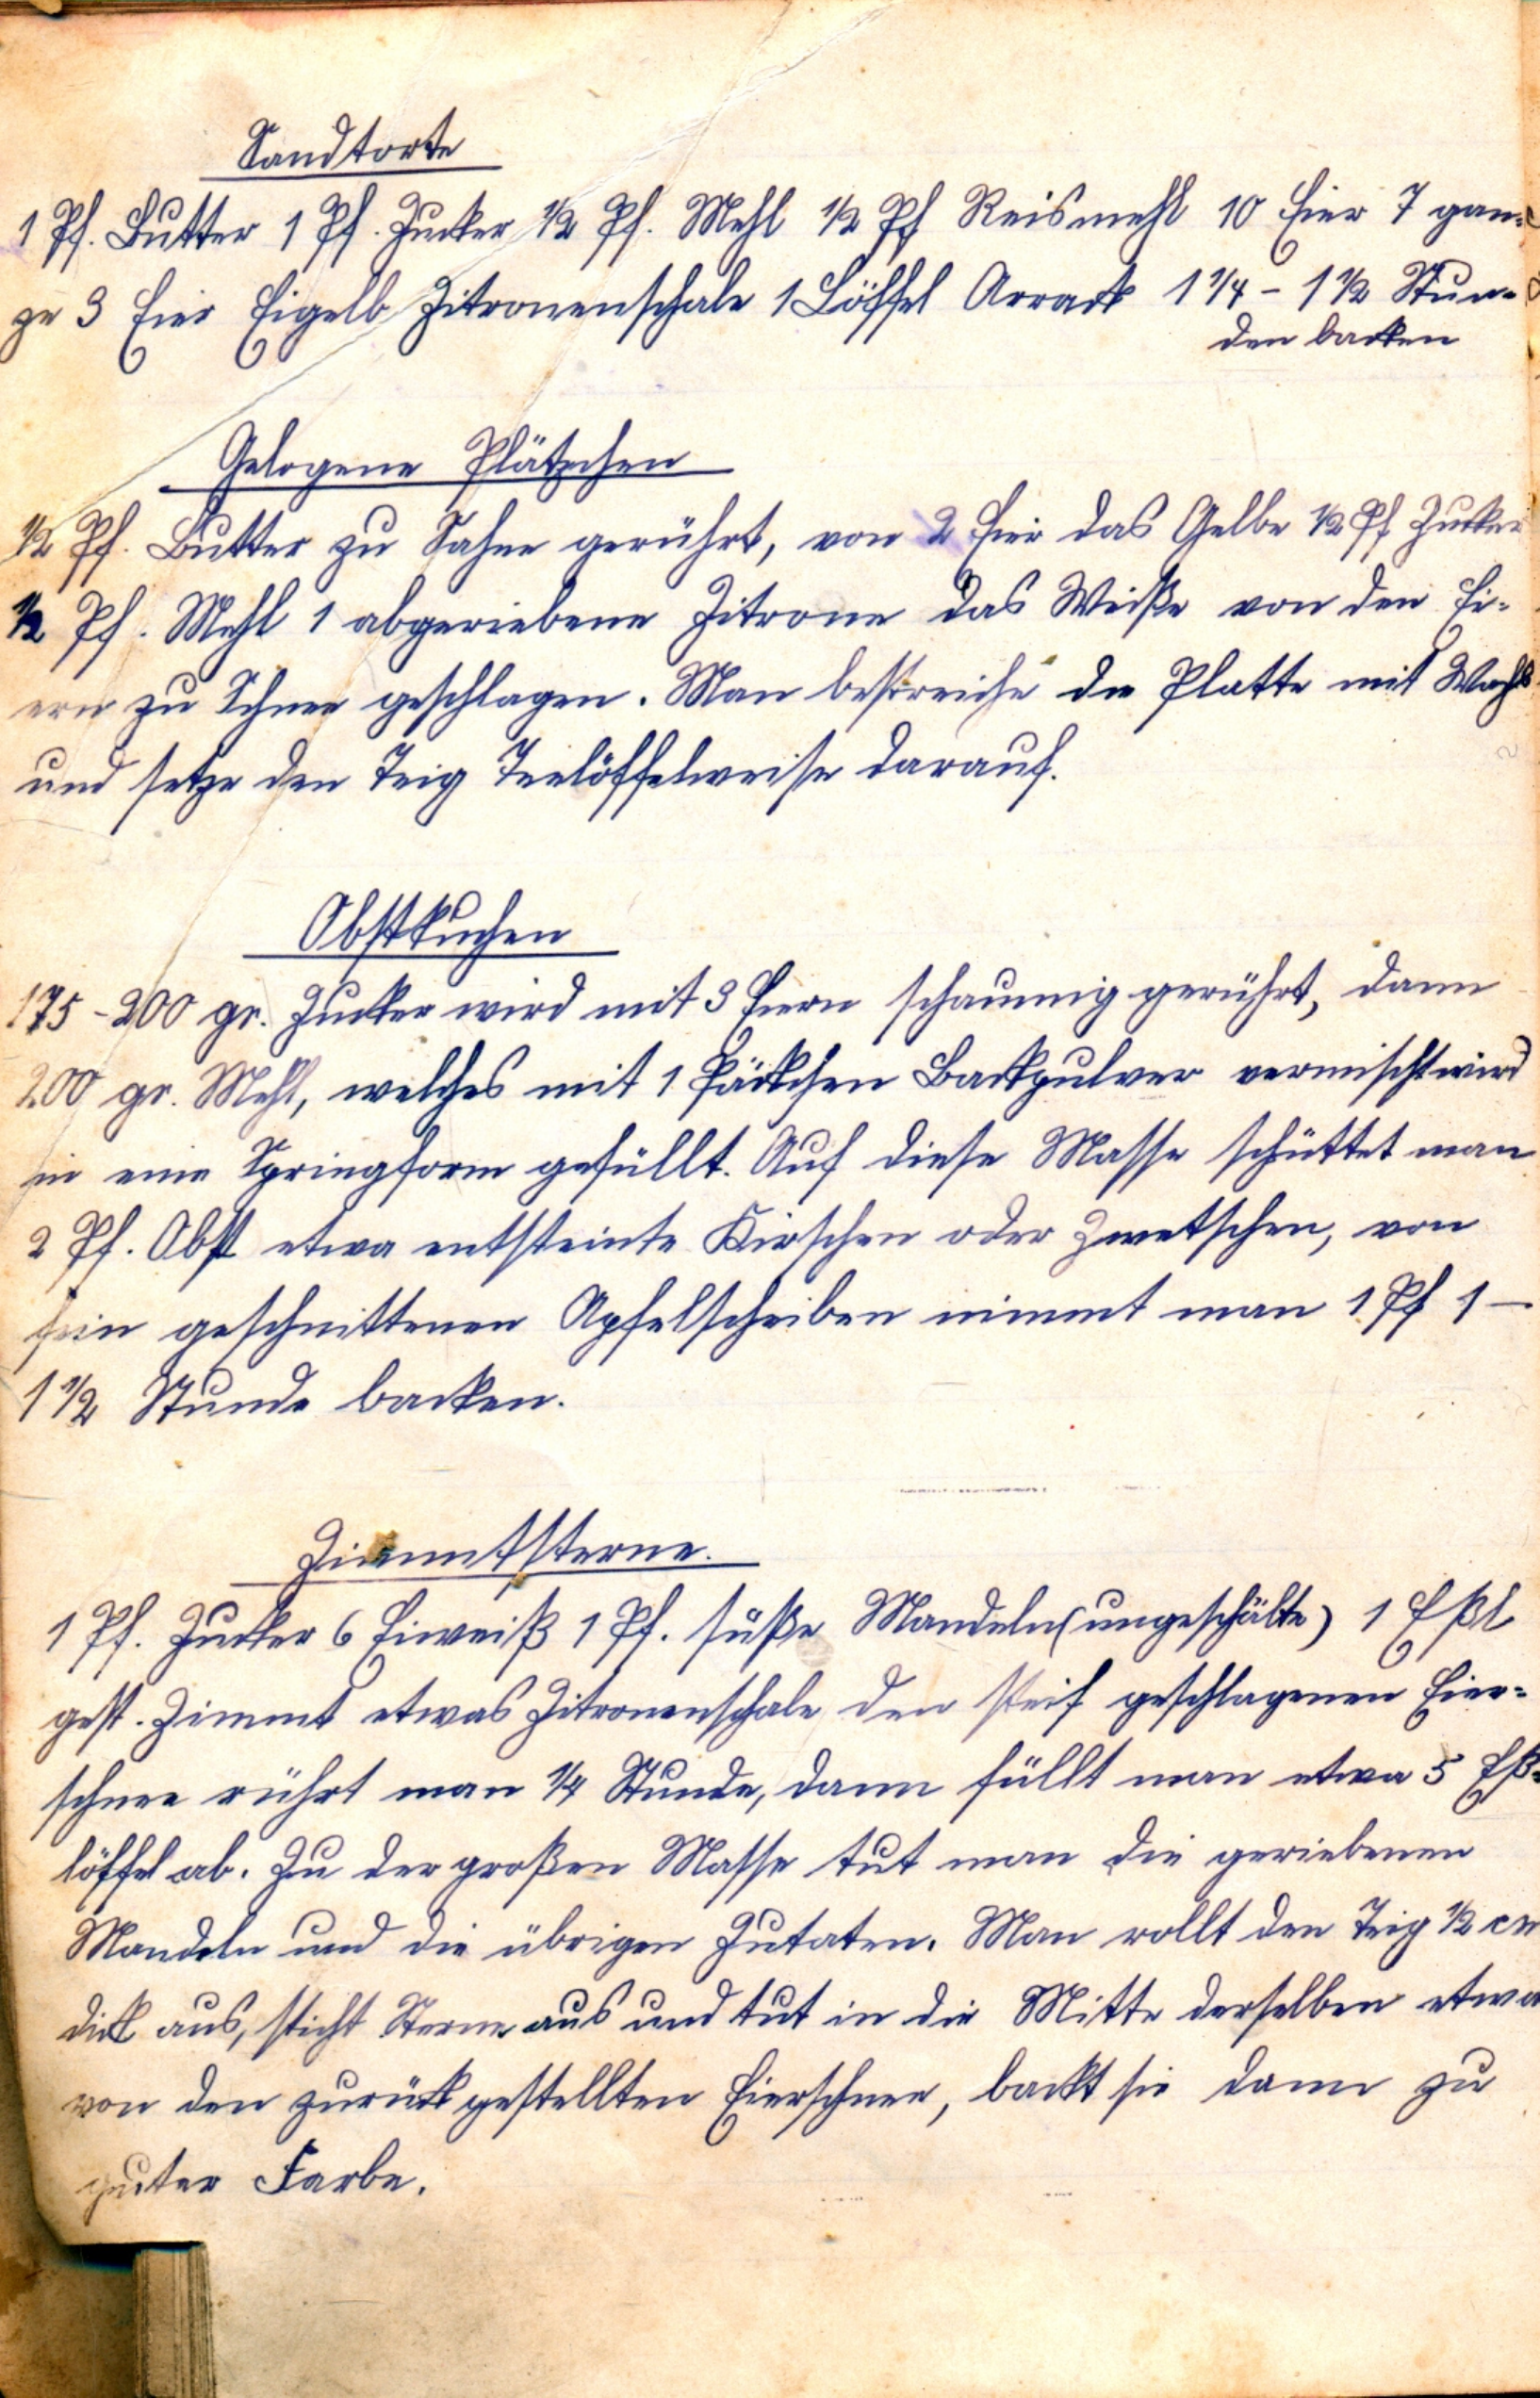 Sandtorte
1 Pf. Butter 1 Pf. Zucker 1/2 Pf. Mehl 1/2 Pf Reismehl 10 Eier 7 gan-
ze 3 Eier Eigelb Zitronenschale 1 Löffel Arrack 1 1/4 - 1 1/2 Stun-
den backen
Gelogene Plätzchen
1/2 Pf. Butter zu Sahne gerührt, von 2 Eier das Gelbe 1/2 Pf Zucker
1/2 Pf. Mehl 1 abgeriebene Zitrone das Weiße von den Ei-
ern zu Schnee geschlagen. Man bestreiche die Platte mit Wachs
und setze den Teig Teelöffelweise darauf.
Obstkuchen
175 - 200 gr. Zucker wird mit 3 Eiern schaumig gerührt, dann
200 gr. Mehl, welches mit 1 Päckchen Backpulver vermischt wird
in eine Springform gefüllt. Auf diese Masse schüttet man
2 Pf. Obst etwa entsteinte Kirschen oder Zwetschen, von
fein geschnittenen Apfelscheiben nimmt man 1 Pf 1 -
1 1/2 Stunde backen.
Zimmtsterne.
1 Pf. Zucker 6 Eiweiß 1 Pf. süße Mandeln (ungeschälte) 1 Eßl
gest. Zimmt etwas Zitronenschale den steif geschlagenen Eier-
schnee rührt man 1/4 Stunde, dann füllt man etwa 5 Eß-
löffel ab. Zu der großen Masse tut man die geriebenen
Mandeln und die übrigen Zutaten. Man rollt den Teig 1/2 cm
dick aus, sticht Sterne aus und tut in die Mitte derselben etwa
von den zurückgestellten Eierschnee, backt sie dann zu
guter Farbe.